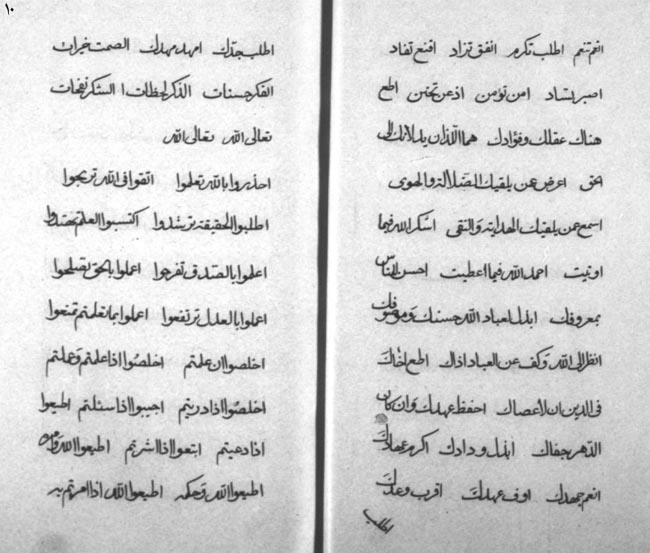 انعم تنعم اطلب تكرم انفق تزاد اقنع تفاد
اصبر تساد امن تؤمن اذعن تحنن اطع
هناك عقلك وفؤادك هما اللذان يدلانك الى
الحق اعرض عمن يلقيك الضلالة والهوى
اسمع عمن يلقيك الهداية والتقى اشكر الله فيما
اوتيت احمد الله فيما اعطيت احسن الناس
بمعروفك ابذل لعباد الله حسنك
انظر الى الله وكف عن العباد اذاك اطع اخاك
فى الدين ان لا عصاك احفظ عهدك وان كان
الدهر جفاك ابذل ودادك اكرم
انعم جهدك اوف عهدك اقرب وعدك
اطلب
١٠
اطلب جدك امهد مهدك الصمت خيرات
الفكر حسنات الذكر لحظات الشكر نفحات
تعالى الله تعالى الله
احذروا بالله تعلموا اتقوا فى الله تربحوا
اطلبوا الحقيقة ترشدوا اكتسبوا العلم تهتدوا
اعلموا بالصدق تفرحوا اعملوا بالحق تصلحوا
اعملوا بالعدل ترتفعوا اعملوا بما تعلمتم تمنعوا
اخلصوا ان علمتم اخلصوا اذا علمتم وعملتم
اخلصوا اذا دريتم اجيبوا اذا سئلتم اطيعوا
اذا دعيتم ابتعوا اذا اشرتم اطيعوا الله
اطيعوا الله وحكمه اطيعوا الله اذا امرتم به